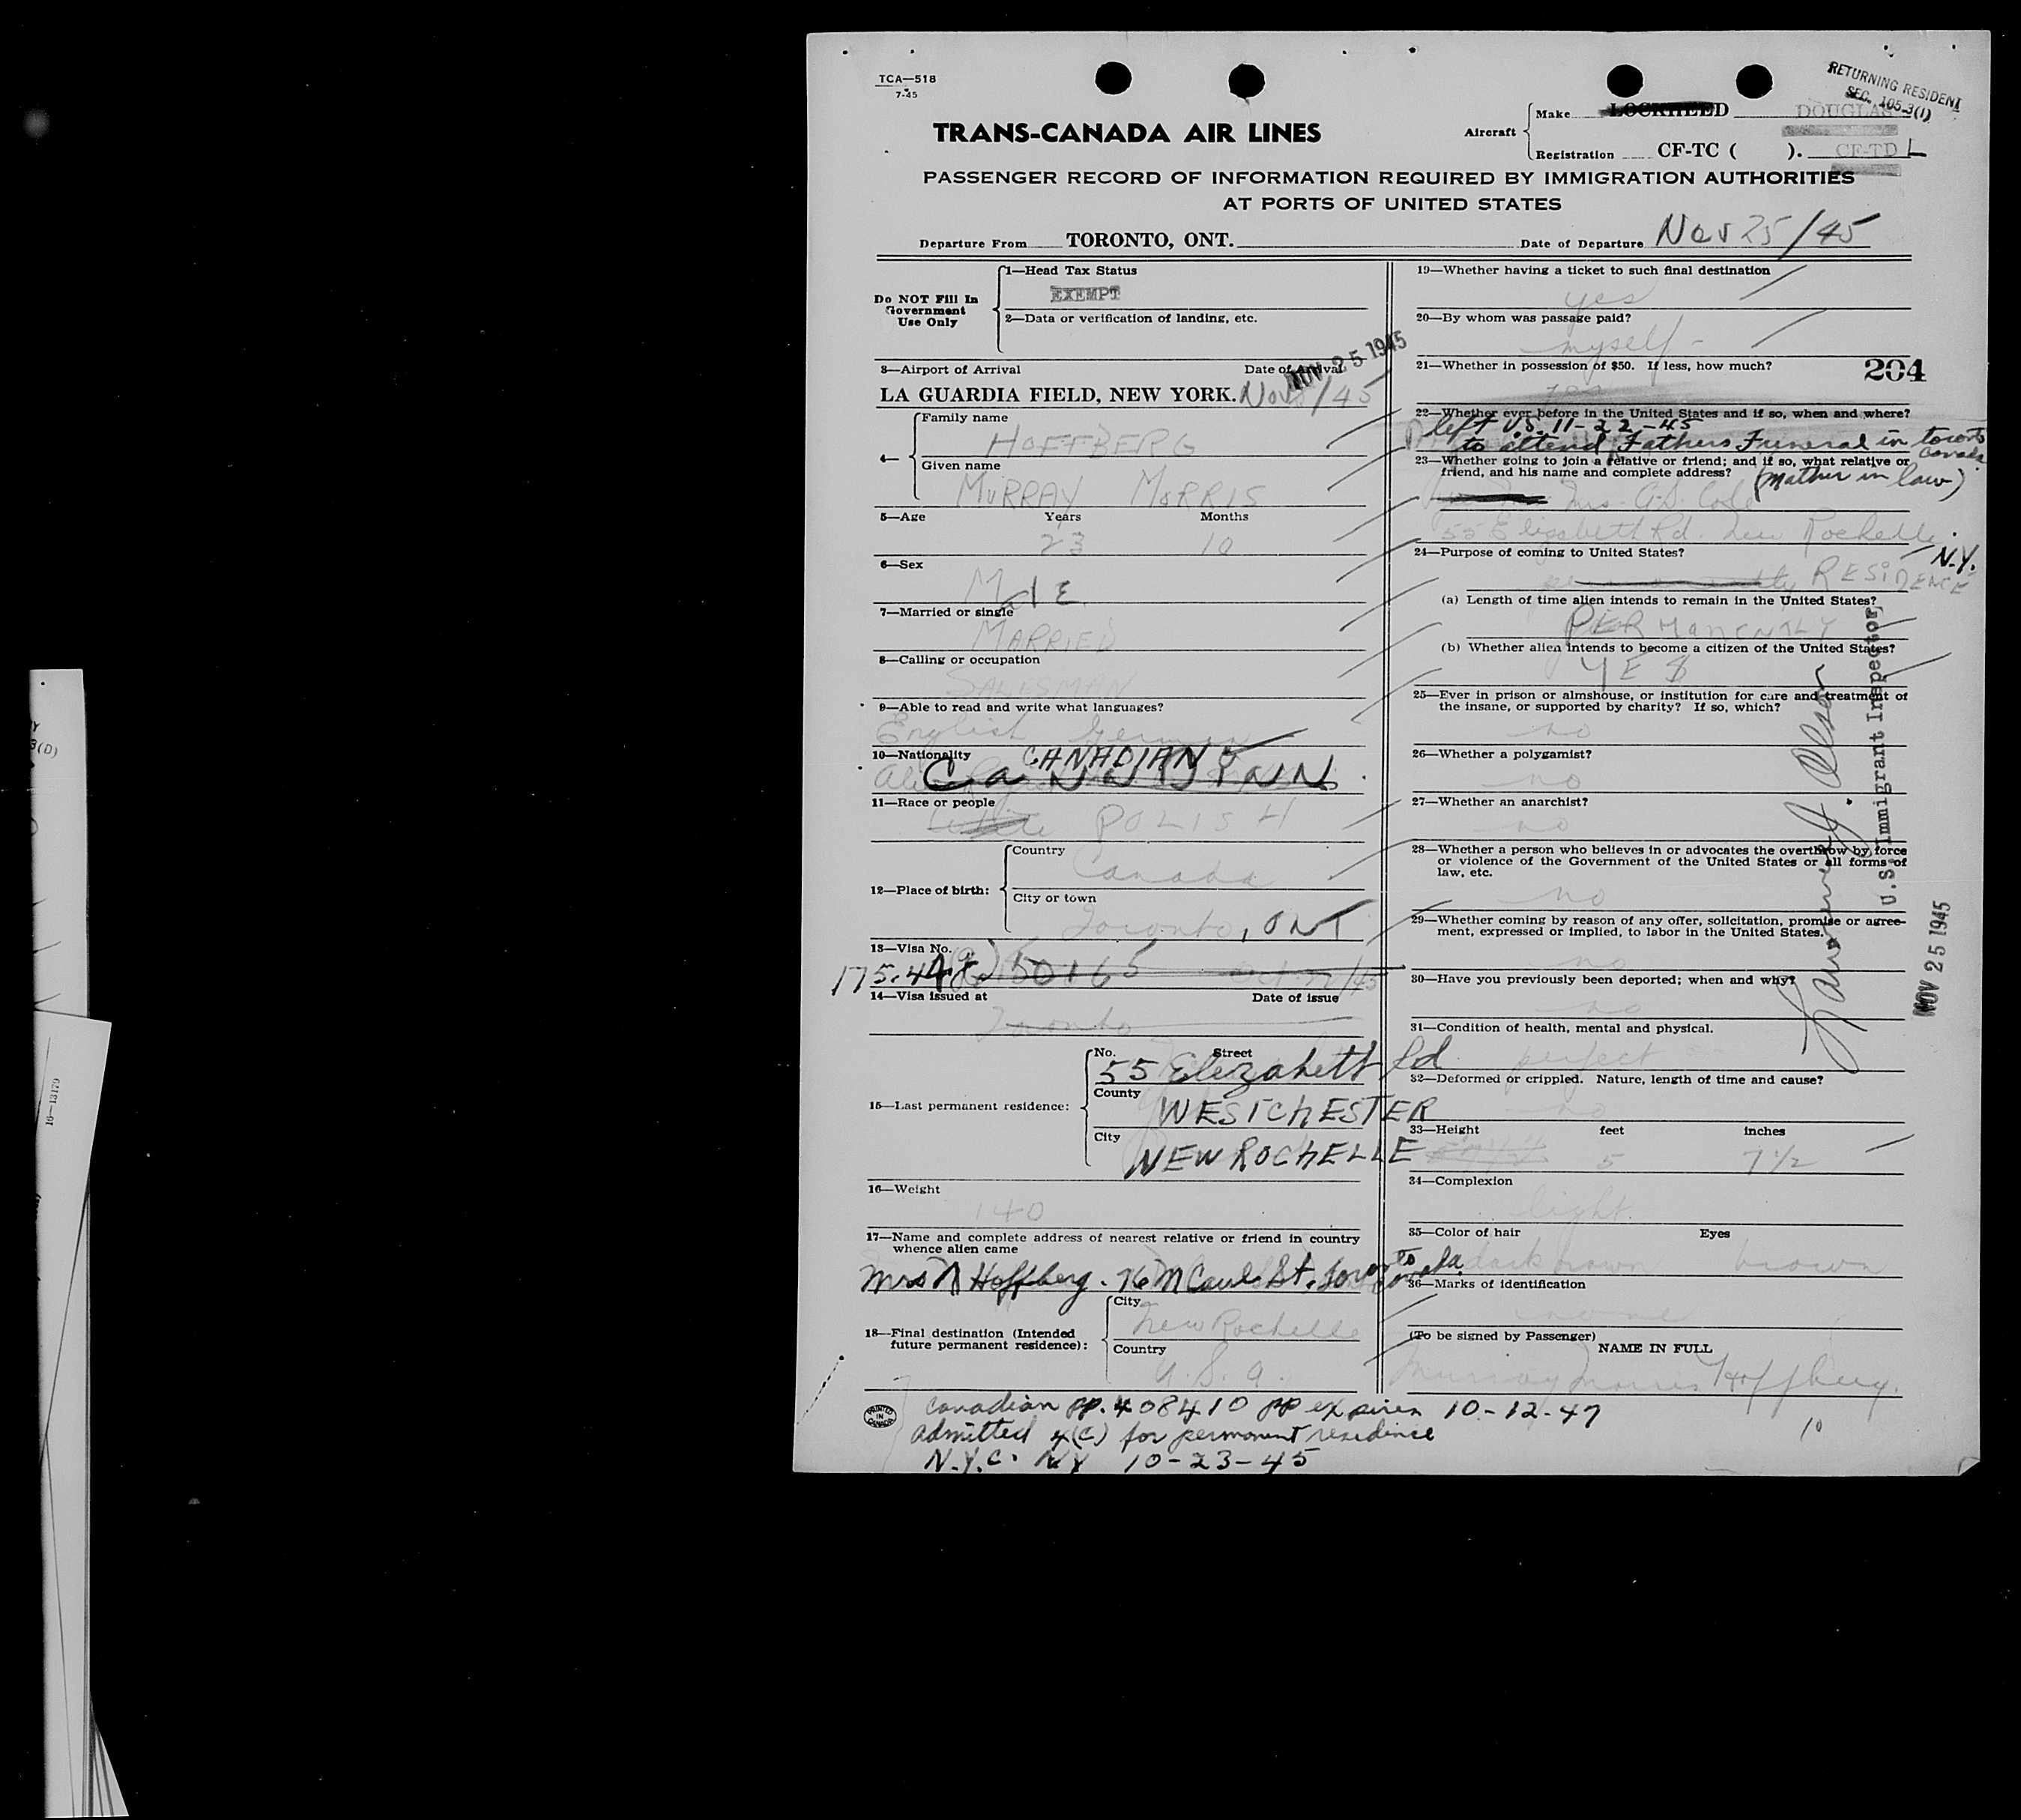 TCA—518
7-45
RETURNING RESIDENT
SEC. 105.3(1)
TRANS-CANADA AIR LINES
Aircraft
Make LOCKHEED DOUGLAS
Registration CF-TC ( ). CF-TD L
PASSENGER RECORD OF INFORMATION REQUIRED BY IMMIGRATION AUTHORITIES
AT PORTS OF UNITED STATES
Departure From TORONTO, ONT. Date of Departure Nov 25/45
Do NOT Fill In
Government
Use Only
1—Head Tax Status
EXEMPT
2—Data or verification of landing, etc.
NOV 25 1945
3—Airport of Arrival Date of Arrival
LA GUARDIA FIELD, NEW YORK. Nov /45
4—
Family name
HOFFBERG
Given name
MURRAY MORRIS
5—Age Years Months
23 10
6—Sex
MalE
7—Married or single
MARRIED
8—Calling or occupation
SALESMAN
9—Able to read and write what languages?
English German
10—Nationality CANADIAN
CaNADIANN
11—Race or people
White POLISH
12—Place of birth:
Country
Canada
City or town
Toronto, ONT
13—Visa No.
175.44 50165
14—Visa issued at Date of issue
Toronto
15—Last permanent residence:
No. Street
55 Elezabeth Rd
County
WESTChESTER
City
NEW ROChELLE
16—Weight
140
17—Name and complete address of nearest relative or friend in country
whence alien came
Mrs N Hoffberg. 76 McCaul St. Toronto Canada
18—Final destination (Intended
future permanent residence):
City
New Rochelle
Country
U.S.a.
PRINTED
IN
CANADA
Canadian pp. 408410 pp expires 10-12-47
admitted 4(C) for permanent residence
N.Y.C. NY 10-23-45
19—Whether having a ticket to such final destination
yes
20—By whom was passage paid?
myself
21—Whether in possession of $50. If less, how much?
204
yes
22—Whether ever before in the United States and if so, when and where?
left U.S. 11-22-45
to attend Fathers Funeral in toronto
Canada
23—Whether going to join a relative or friend; and if so, what relative or
friend, and his name and complete address?
(Mother in law)
Mrs. A.D. Cole
55 Elizabeth Rd. New Rochelle
N.Y.
24—Purpose of coming to United States?
RESIDENCE
(a) Length of time alien intends to remain in the United States?
PERMANENTLY
(b) Whether alien intends to become a citizen of the United States?
YES
25—Ever in prison or almshouse, or institution for care and treatment of
the insane, or supported by charity? If so, which?
no
26—Whether a polygamist?
no
27—Whether an anarchist?
no
28—Whether a person who believes in or advocates the overthrow by force
or violence of the Government of the United States or all forms of
law, etc.
no
29—Whether coming by reason of any offer, solicitation, promise or agree-
ment, expressed or implied, to labor in the United States.
no
30—Have you previously been deported; when and why?
no
31—Condition of health, mental and physical.
perfect
32—Deformed or crippled. Nature, length of time and cause?
no
33—Height feet inches
5 7 1/2
34—Complexion
light
35—Color of hair Eyes
dark brown brown
36—Marks of identification
none
(To be signed by Passenger)
NAME IN FULL
Murray Morris Hoffberg.
10
U.S. Immigrant Inspector
NOV 25 1945
3(D)
16—13179